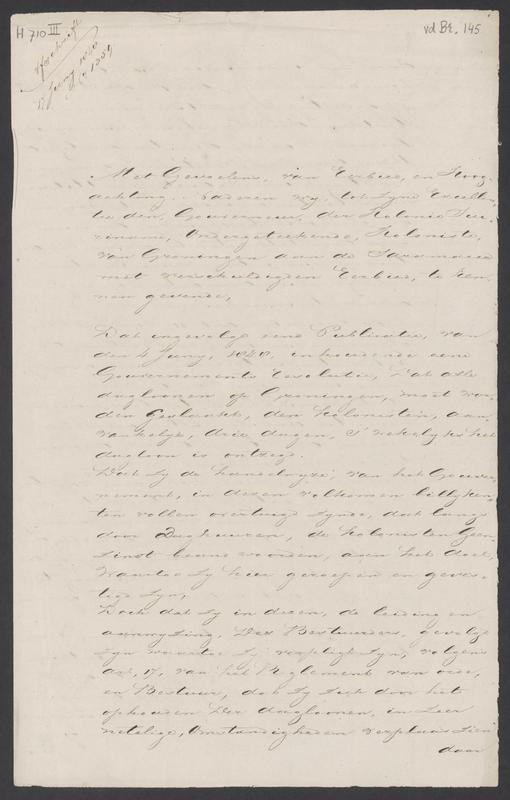 H 710 III
vd Br. 145
Afschrift
Met Gevoelens, van Eerbied, en Hoog-
achting. naderen wy, tot Zyne Excellen-
tie den, Gouverneur, der Kolonie Su-
riname, Ondergeteekende, Kolonisten,
van Groningen aan de Saramacca
met verschuldigden Eerbied, te ken-
nen gevende,
Dat ingevolge eene Publicatie, van
den 4 Juny, inhoudende eene
Gouvernements Resolutie, Dat alle
dagloonen op Groningen, moet wor-
den Geslaakt, den kolonisten, aan-
vankelyk, drie dagen, 's wekelyks het
dagloon is ontzegt.
Dat Zy de handelwyze, van het Gouver-
nement, in dezen volkomen billyken,
ten vollen overtuigd Zynde, dat langs
door Daghuuren, de kolonisten Geen-
Zinst beantwoorden, aan het doel,
Waartoe Zy hier geroepen en geves-
tigd Zyn,
Doch dat Zy in dezen, de leiding en
aanwyzing, Des Bestuurders, gevolgd
Zyn waartoe Zy verpligt Zyn, volgens
art, 17, van het Reglement van orde,
en Bestuur, dat Zy Zich door het
ophouden Der dagloonen, in Zeer
netelige, Omstandigheden verplaatst Zien
daar